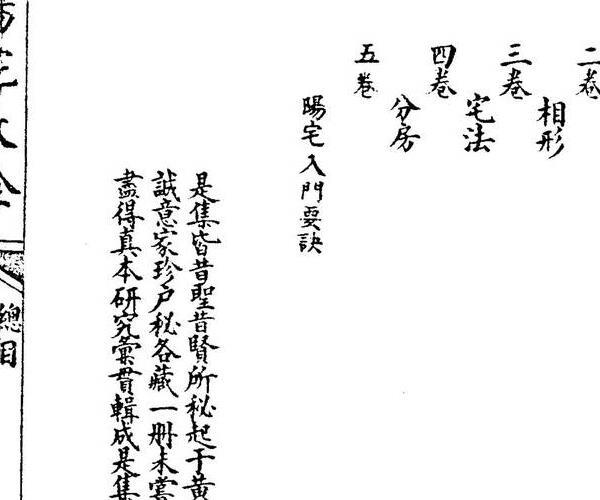 二卷
相形
三卷
宅法
四卷
分房
五卷
陽宅入門要訣
是集皆昔聖昔賢所秘起于黃
誠意家珍戶秘各藏一册未嘗
盡得真本研究彙貫輯成是集
總目